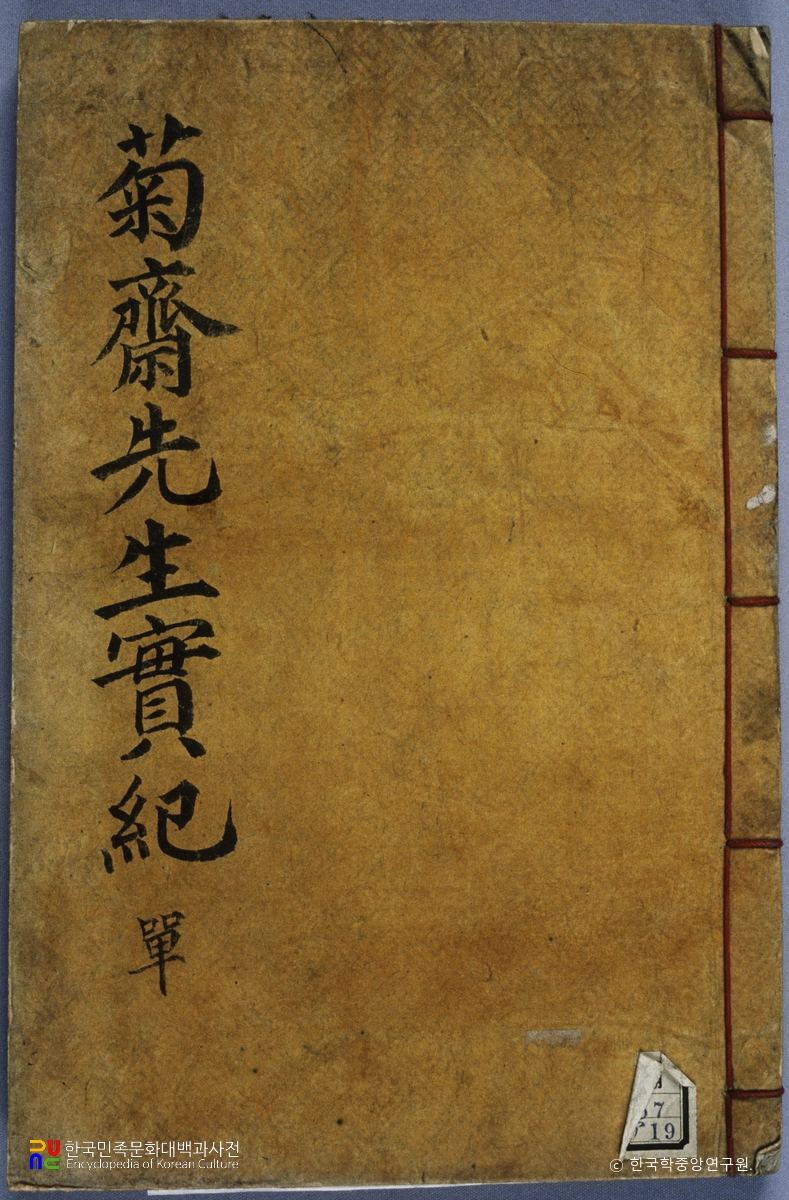 菊齋先生實紀 單
7
19
한국민족문화대백과사전
Encyclopedia of Korean Culture
© 한국학중앙연구원